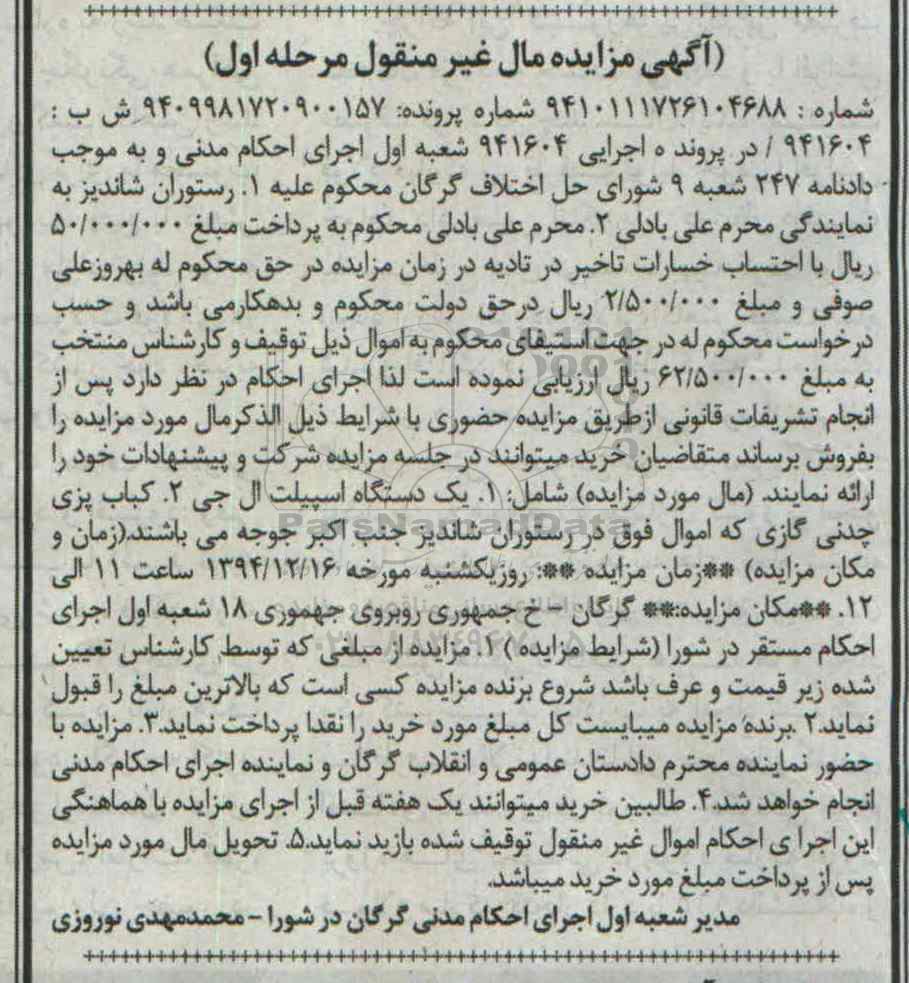 (آگهی مزایده مال غیر منقول مرحله اول)
شماره : ۹۴۱۰۱۱۱۷۲۶۱۰۴۶۸۸ شماره پرونده: ۹۴۰۹۹۸۱۷۲۰۹۰۰۱۵۷ ش ب :
۹۴۱۶۰۴ / در پروند ه اجرایی ۹۴۱۶۰۴ شعبه اول اجرای احکام مدنی و به موجب
دادنامه ۲۴۷ شعبه ۹ شورای حل اختلاف گرگان محکوم علیه ۱. رستوران شاندیز به
نمایندگی محرم علی بادلی ۲. محرم علی بادلی محکوم به پرداخت مبلغ ۵۰/۰۰۰/۰۰۰
ریال با احتساب خسارات تاخیر در تادیه در زمان مزایده در حق محکوم له بهروزعلی
صوفی و مبلغ ۲/۵۰۰/۰۰۰ ریال درحق دولت محکوم و بدهکارمی باشد و حسب
درخواست محکوم له در جهت استیفای محکوم به اموال ذیل توقیف و کارشناس منتخب
به مبلغ ۶۲/۵۰۰/۰۰۰ ریال ارزیابی نموده است لذا اجرای احکام در نظر دارد پس از
انجام تشریفات قانونی ازطریق مزایده حضوری با شرایط ذیل الذکرمال مورد مزایده را
بفروش برساند متقاضیان خرید میتوانند در جلسه مزایده شرکت و پیشنهادات خود را
ارائه نمایند. (مال مورد مزایده) شامل: ۱. یک دستگاه اسپیلت ال جی ۲. کباب پزی
چدنی گازی که اموال فوق در رستوران شاندیز جنب اکبر جوجه می باشند.(زمان و
مکان مزایده) **زمان مزایده **: روزیکشنبه مورخه ۱۳۹۴/۱۲/۱۶ ساعت ۱۱ الی
۱۲. **مکان مزایده:** گرگان - خ جمهوری روبروی جهموری ۱۸ شعبه اول اجرای
احکام مستقر در شورا (شرایط مزایده ) ۱. مزایده از مبلغی که توسط کارشناس تعیین
شده زیر قیمت و عرف باشد شروع برنده مزایده کسی است که بالاترین مبلغ را قبول
نماید.۲ .برنده مزایده میبایست کل مبلغ مورد خرید را نقدا پرداخت نماید.۳. مزایده با
حضور نماینده محترم دادستان عمومی و انقلاب گرگان و نماینده اجرای احکام مدنی
انجام خواهد شد.۴. طالبین خرید میتوانند یک هفته قبل از اجرای مزایده با هماهنگی
این اجرا ی احکام اموال غیر منقول توقیف شده بازید نماید.۵. تحویل مال مورد مزایده
پس از پرداخت مبلغ مورد خرید میباشد.
مدیر شعبه اول اجرای احکام مدنی گرگان در شورا - محمدمهدی نوروزی
ParsNamadData